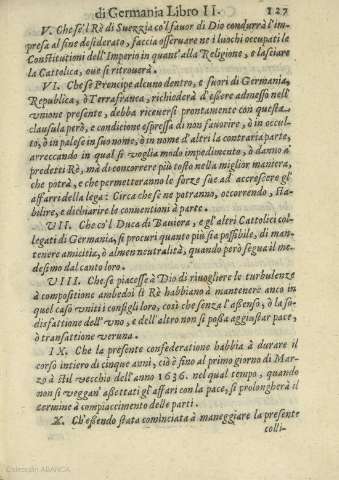 di Germania Libro II.        127
V. Che se'l Rè di Suezzia co'l fauor di Dio condurrà l'im-
presa al fine desiderato, faccia osseruare ne i luochi occupati le
Constitutioni dell'Imperio in quant'alla Religione, e lasciare
la Cattolica, oue si ritrouerà.
VI. Che se Prencipe alcuno dentro, e fuori di Germania,
Republica, ò Terrafranca, richiederà d'essere admesso nell'
vnione presente, debba riceuersi prontamente con questa
clausula però, e condicione espressa di non fauorire, ò in occul-
to, ò in palese in suo nome, ò in nome d'altri la contraria parte,
arreccando in qual si voglia modo impedimento, ò danno a'
predetti Rè, ma di concorrere più tosto nella miglior mantera,
che potrà, e che permetteranno le forze sue ad accrescere gl'
affari della lega: Circa che se ne potranno, occorrendo, sta-
bilire, e dichiarire le conuentioni à parte.
VII. Che co'l Duca di Bauiera, e gl'altri Cattolici col-
legati di Germania, si procuri quanto più sia possibile, di man-
tenere amicitia, ò almen neutralità, quando però segua il me-
desimo dal canto loro.
VIII. Che se piacesse à Dio di riuogliere le turbulenze
à compositione ambedoi li Rè habbiano à mantenere anco in
quel caso vniti consigli loro, così che senza l'assenso, ò la so-
disfattione dell'vno, e dell'altro non si possa aggiustar pace,
ò transattione veruna.
IX. Che la presente confederatione habbia à durare il
corso intiero di cinque anni, cio è fino al primo giorno di Mar-
zo à stil vecchio dell'anno 1636. nel qual tempo, quando
non si veggan' assettati gl'affari con la pace, si prolongherà il
termine à compiaccimento delle parti.
X. Ch'essendo stata cominciata à maneggiare la presente
colli-
Colección ABANCA